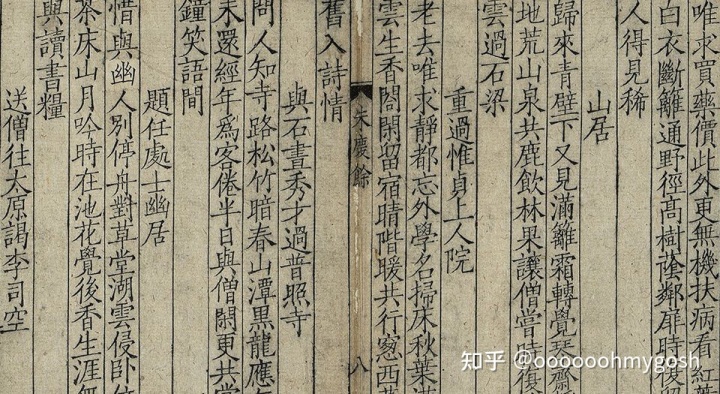 唯求買藥價此外更無機扶病看紅葉
白衣斷籬通野徑高樹蔭鄰扉時復留
人得見稀
山居
歸來青壁下又見滿籬霜轉覺琴齋
地荒山泉共鹿飲林果讓僧嘗時復
雲過石梁
重過惟貞上人院
老去唯求靜都忘外學名掃床秋葉滿
雲生香閤閑留宿晴階暖共行窻西
朱慶餘
八
舊入詩情
與石晝秀才過普照寺
問人知寺路松竹暗春山潭黑龍應
未還經年爲客倦半日與僧閑更共嘗
鐘笑語間
題任處士幽居
惜與幽人別停舟對草堂湖雲侵卧
茶床山月吟時在池花覺後香生涯無
與讀書糧
送僧往太原謁李司空
知乎 @oooooohmygosh